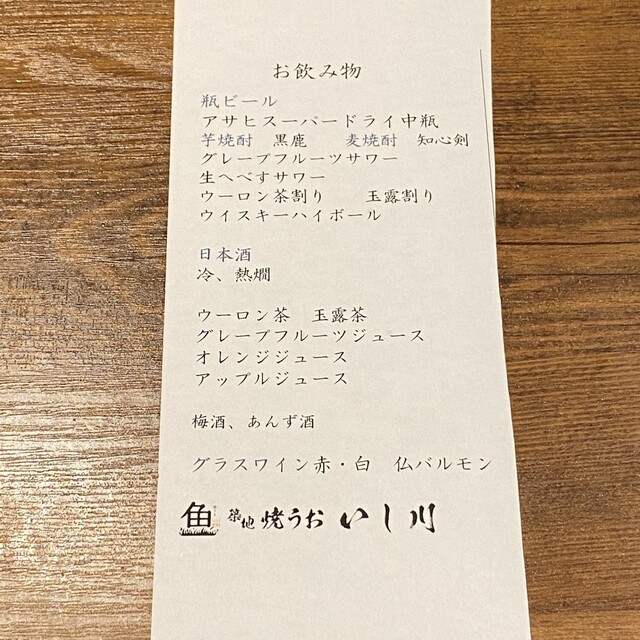 お飲み物
瓶ビール
アサヒスーパードライ中瓶
芋焼酎　黒鹿　　麦焼酎　知心剣
グレープフルーツサワー
生へべすサワー
ウーロン茶割り　　玉露割り
ウイスキーハイボール
日本酒
冷、熱燗
ウーロン茶　玉露茶
グレープフルーツジュース
オレンジジュース
アップルジュース
梅酒、あんず酒
グラスワイン赤・白　仏バルモン
魚 築地 焼うお いし川